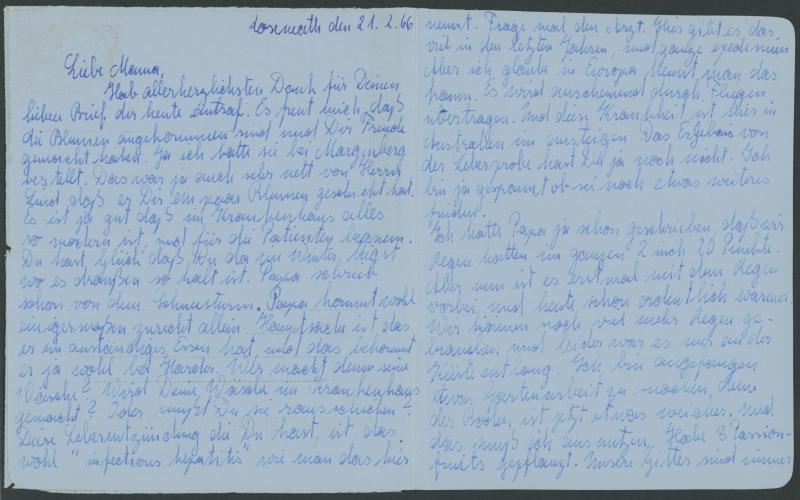 Rosemeath den 21.2.66
Liebe Mama,
Hab allerherzlichsten Dank für Deinen
lieben Brief der heute eintraf. Es freut mich, daß
die Blumen angekommen sind und Dir Freude
gemacht haben. Ja ich hatte sie bei
bestellt. Das war ja auch sehr nett von Herrn
Lind daß er Dir ein paar Blumen geschickt hat.
Es ist ja gut daß im Krankenhaus alles
so modern ist, und für die Patienten bequem.
Du hast Glück daß Du da im Winter liegst
wo es draußen so kalt ist. Papa schrieb
schon von dem Schneesturm. Papa kommt wohl
einigermaßen zurecht allein. Hauptsache ist das
er ein anständiges Essen hat, und das bekommt
er ja wohl bei Wer macht denn seine
Wäsche? Wird Deine Wäsche im Krankenhaus
gemacht? Oder mußt Du sie rausschicken?
Diese Leberentzündung die Du hast, ist das
wohl "infectious hepatitis" wie man das hier
nennt. Frage mal den Arzt. Hier gibt es das
viel in den letzten Jahren, und ganze epedemien
Aber ich glaube in Europa kennt man das
kaum. Es wird anscheinend durch Fliegen
übertragen. Und diese Krankheit ist hier in
Australien im ansteigen. Das Ergebnis von
der Leberprobe hast Du ja noch nicht. Ich
bin ja gespannt ob sie noch etwas weiteres
finden.
Ich hatte Papa ja schon geschrieben, daß wir
Regen hatten im ganzen 2 inch 20 Punkte.
Aber nun ist es erst mal mit dem Regen
vorbei und heute schon ordentlich warm.
Wir können noch viel mehr Regen ge-
brauchen und leider war es nur an der
Küste entlang. Ich bin angefangen
etwas Gartenarbeit zu machen, denn
der Boden ist jetzt etwas weicher, und
das muß ich ausnutzen. Habe 3 Passion-
fruits gepflanzt. Unsere Gitter sind immer